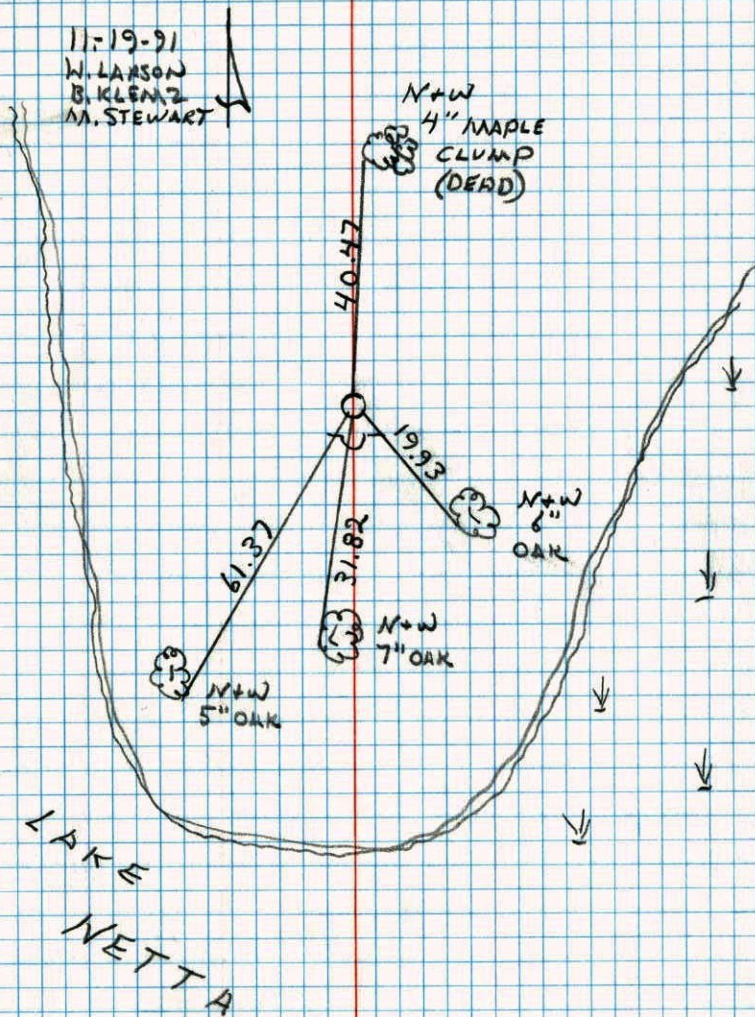 11-19-91
W. LARSON
B. KLEMZ
M. STEWART
N+W
4" MAPLE
CLUMP
(DEAD)
40.47
19.93
N+W
6"
OAK
61.37
31.82
N+W
7" OAK
N+W
5" OAK
LAKE
NETTA